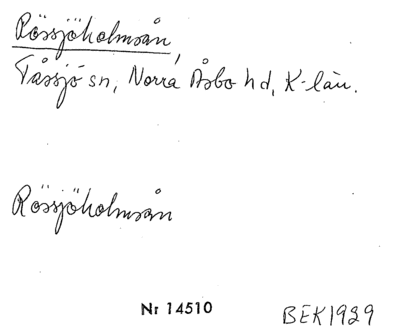 Rössjöholmsån,
Tåssjö sn, Norra Åsbo hd, K-län.
Rössjöholmsån
Nr 14510
BEK1929